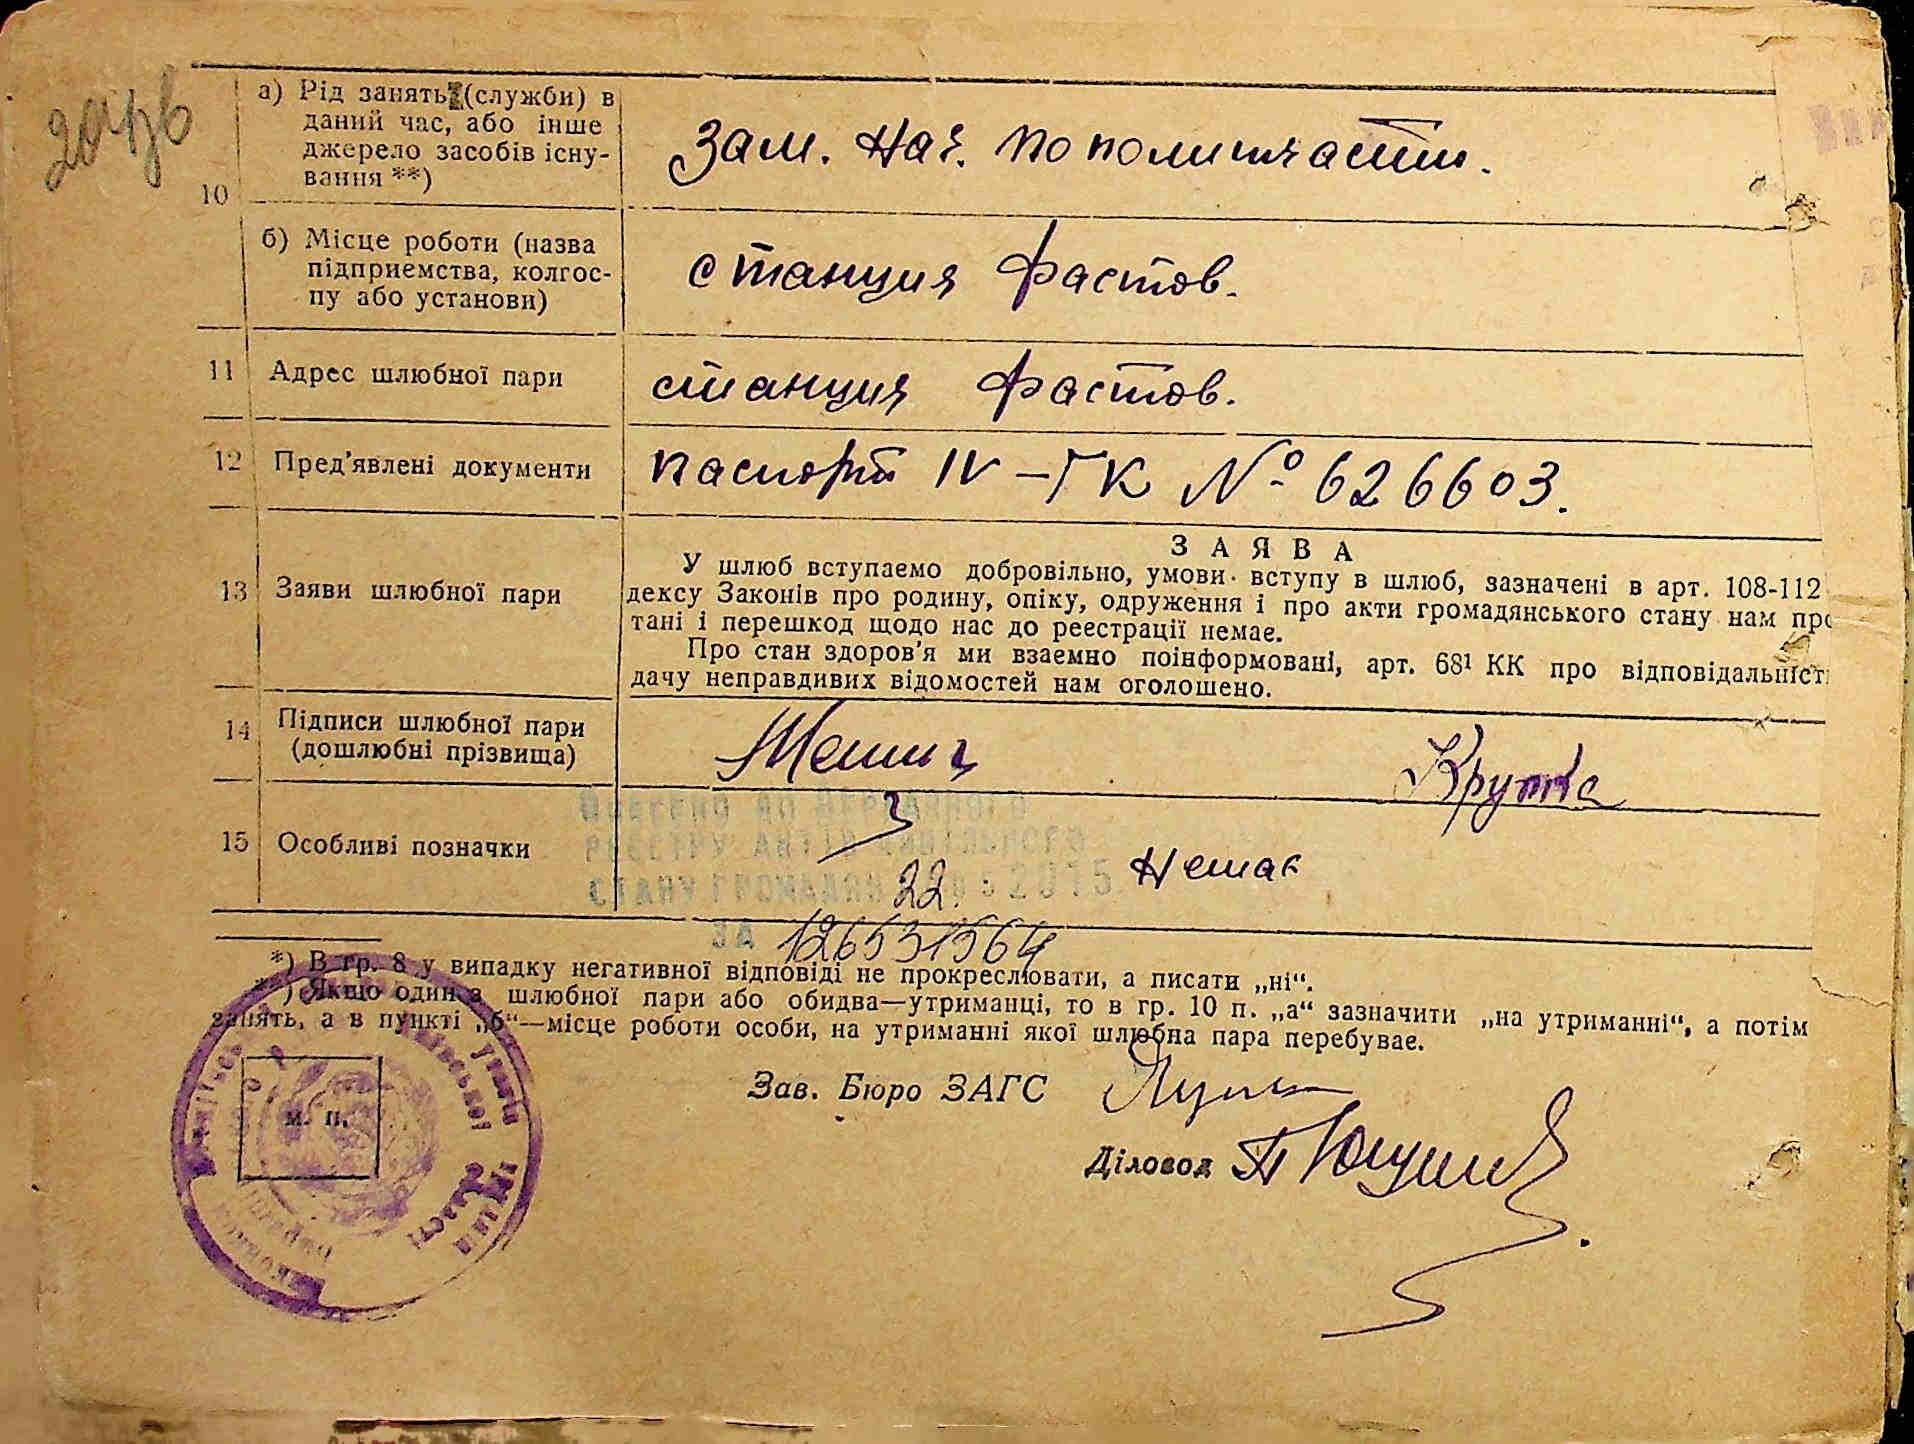 10
а) Рід занять (служби) в
даний час, або інше
джерело засобів існу-
вання **)
Зам. Нач. по политчасти.
б) Місце роботи (назва
підприємства, колгос-
пу або установи)
станция Фастов.
11 Адрес шлюбної пари
станция Фастов.
12 Пред'явлені документи
паспорт IV-ГК № 626603.
13 Заяви шлюбної пари
ЗАЯВА
У шлюб вступаємо добровільно, умови вступу в шлюб, зазначені в арт. 108-112
дексу Законів про родину, опіку, одруження і про акти громадянського стану нам про
тані і перешкод щодо нас до реєстрації немає.
Про стан здоров'я ми взаємно поінформовані, арт. 68¹ КК про відповідальність
дачу неправдивих відомостей нам оголошено.
14 Підписи шлюбної пари
(дошлюбні прізвища)
Крупка
15 Особливі позначки
Немає
ВНЕСЕНО ДО ДЕРЖАВНОГО
РЕЄСТРУ АКТІВ ЦИВІЛЬНОГО
СТАНУ ГРОМАДЯН 22 05 2015
ЗА 126531564
*) В гр. 8 у випадку негативної відповіді не прокреслювати, а писати „ні“.
**) Якщо один з шлюбної пари або обидва—утриманці, то в гр. 10 п. „а“ зазначити „на утриманні“, а потім
занять, а в пункті „б“—місце роботи особи, на утриманні якої шлюбна пара перебуває.
м. п.
Зав. Бюро ЗАГС
Діловод